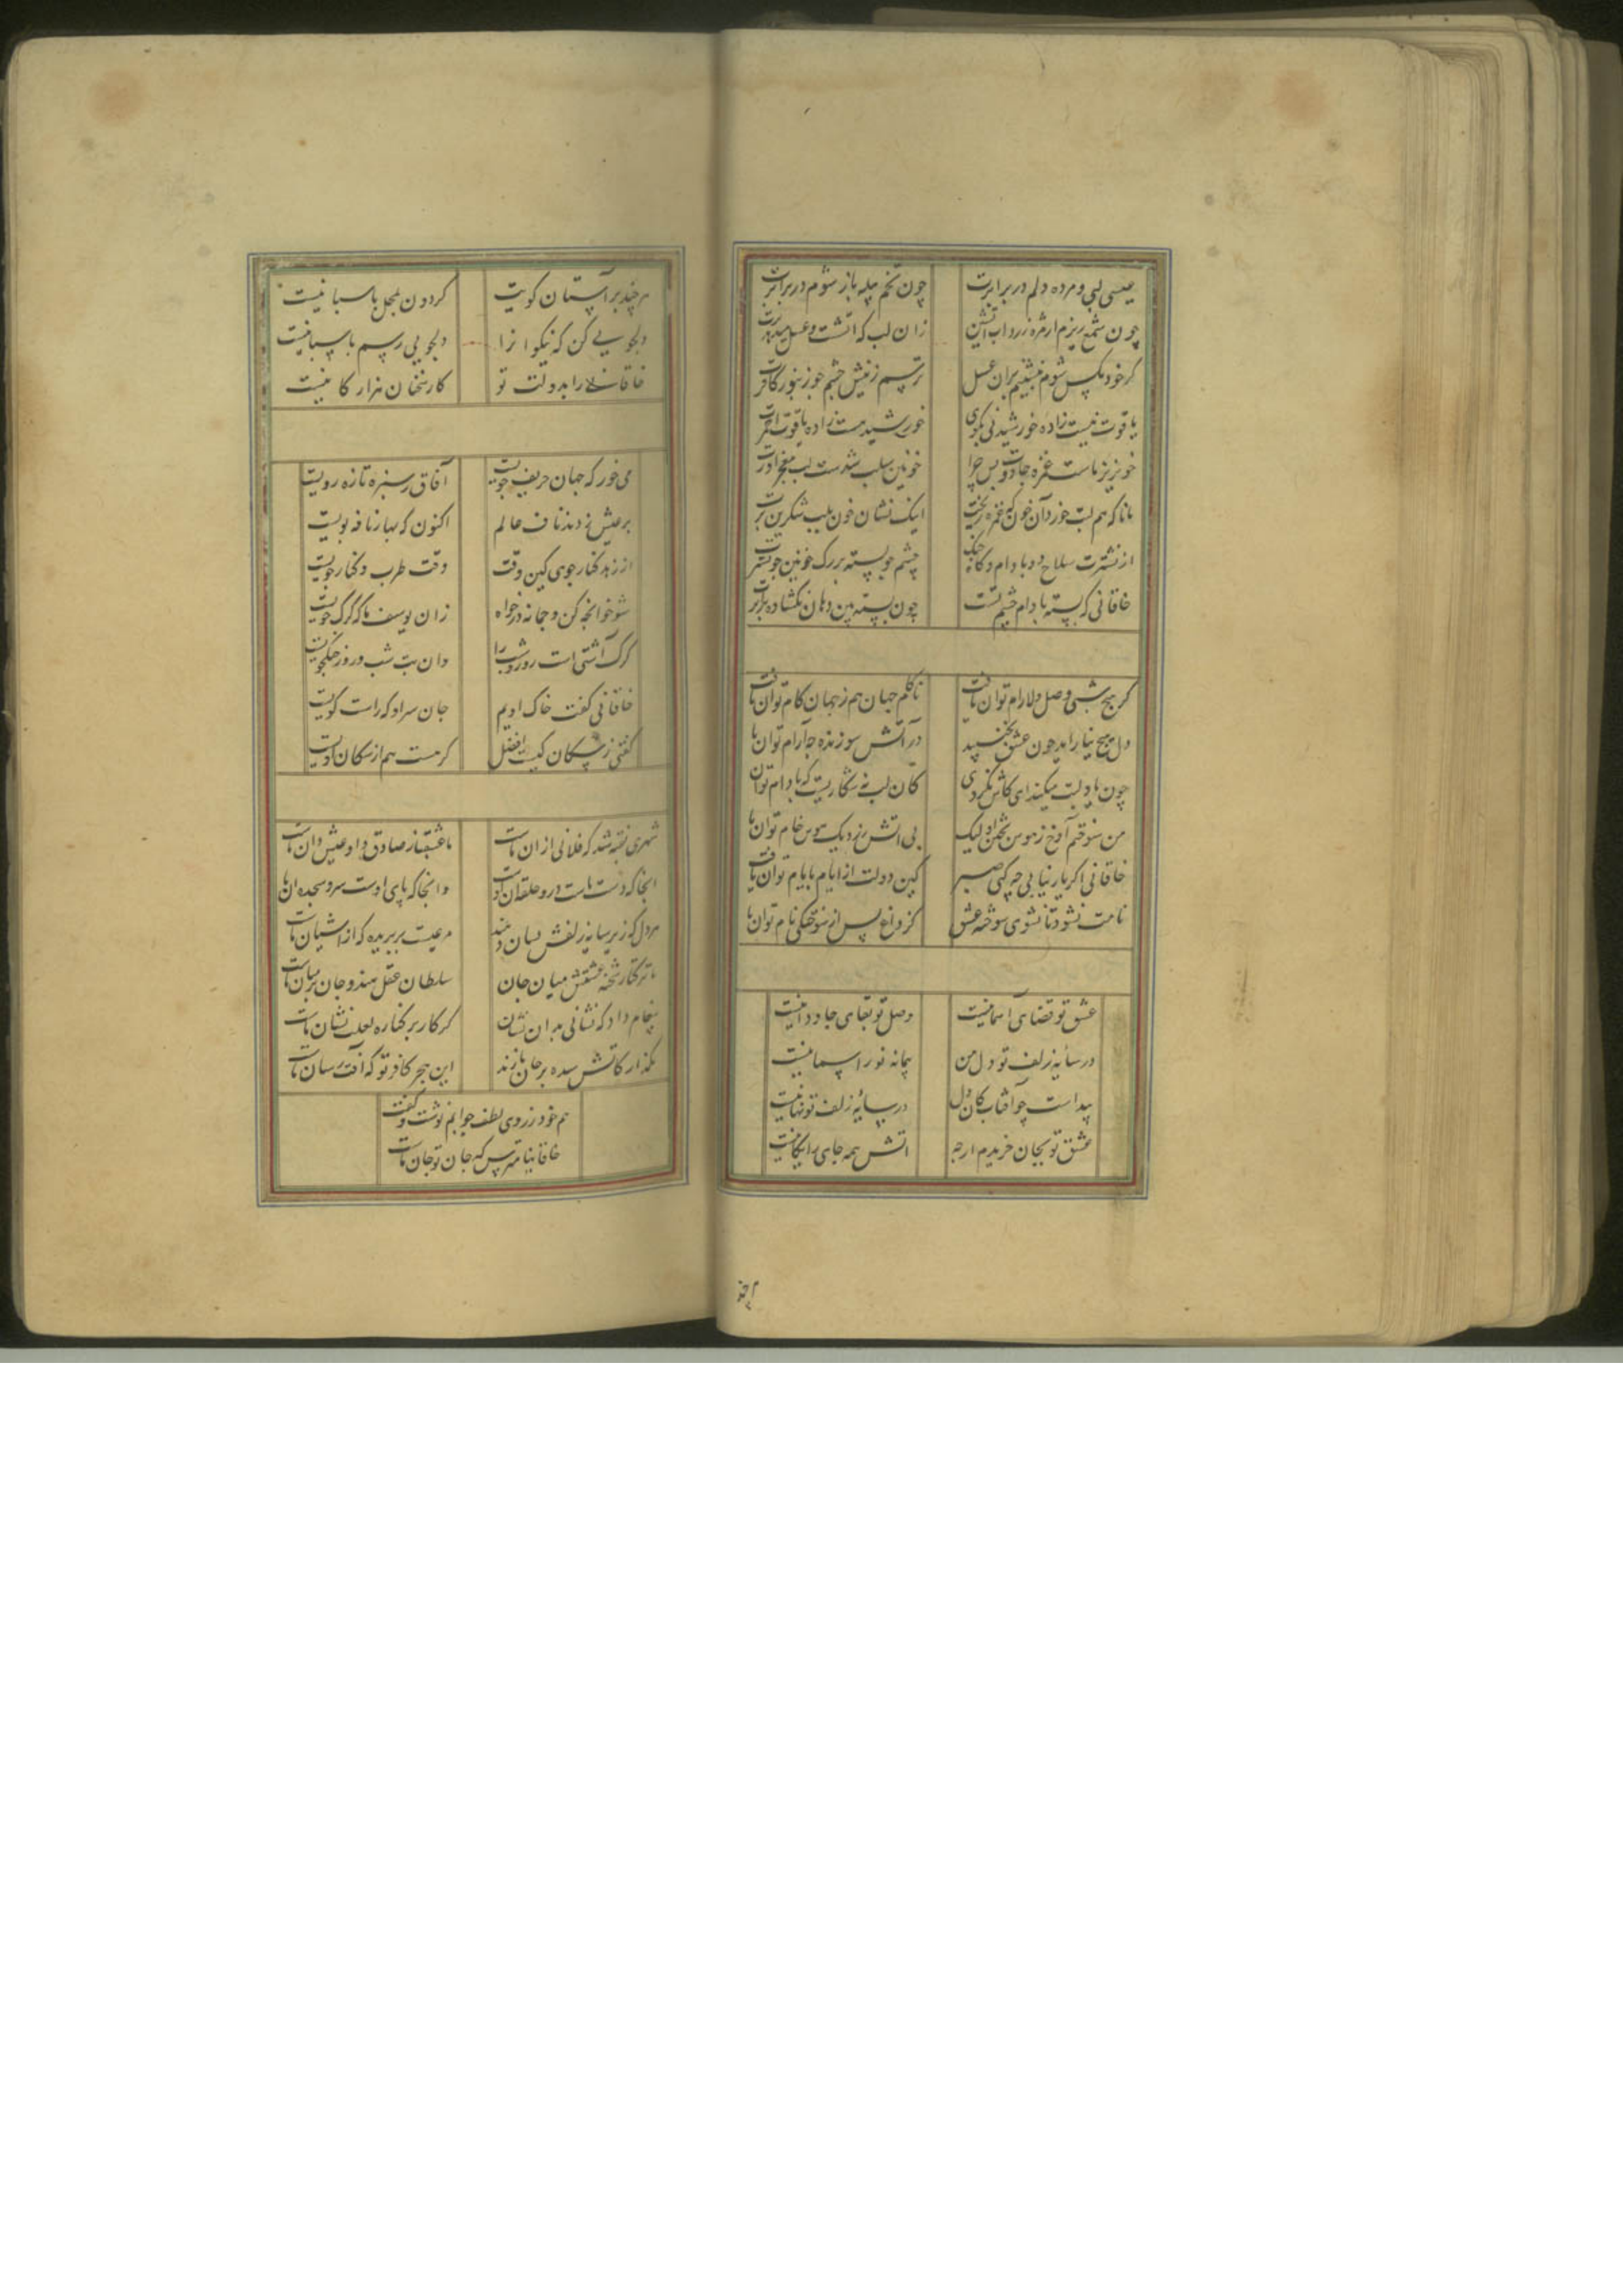 عیسی لبی و مرده دلم در برابرت
چون تخم پیله باز شوم در برابرت
چون شمع ریزم از مژه زرداب آتشین
زان لب که آتشست و عسل
کر خود مکس شوم ننشینم بران عسل
ترسم ز نیش چشم چو زنبور کافرت
یاقوت نیست زاده خورشید نی مکوی
خورشید هست زاده یاقوت احمرت
خونریز ماست غمزه جادوت پس چرا
خونین سلب شدست لب
مانا که هم لبت خورد آن خون که غمزه ریخت
اینک نشان خون بلب شکرین برت
از نشترت سلاح دو بادام وکاه جنک
چشم چو پسته بر رک خونین چو نشترت
خاقانی که بسته بادام چشم تست
چون پسته بین دهان نکشاده برابرت
کر هیچ شبی وصل دلارام توان یافت
ناکام جهان هم ز جهان کام توان یافت
دل هیچ نیارامد چون عشق بجنبید
در آتش سوزنده چه آرام توان یا
چون یاد لبت میکند ای کاش نکردی
کان لب نه شکاریست که با دام توان
من سوختم آوخ ز هوس پختن او لیک
بی اتش نزدیک هوس خام توان یا
خاقانی اکر یار نیابی چه کنی صبر
کین دولت از ایام بایام توان یافت
نامت نشود تا نشوی سوخته عشق
کز داغ پس از سوختکی نام توان یا
عشق تو قضای آسمانیست
وصل تو بقای جاودانیست
در سایه زلف تو دل من
پیمانه نور اسمانیست
پیداست چو آفتاب کان دل
در سایه زلف تو نهانیست
عشق تو بجان خریدم ارچه
اتش همه جای رایکانیست
هر چند
هر چند بر آستان کویت
کردون بمحل پاسبانیست
دلجویی کن که نیکوانرا
دلجویی رسم باستانیست
خاقانی را بدولت تو
کار سخنان هزار کانیست
می خور که جهان حریف جویست
آفاق ز سبزه تازه رویست
بر عیش زدند ناف عالم
اکنون که بهار نافه بویست
از زهد کنار جوی کین وقت
وقت طرب و کنار جویست
شو خوانچه کن و چمانه در خواه
زان یوسف ما که کرک خویست
کرک آشتی است روز و شب را
وان بت شب و روز جنکجویست
خاقانی کفت خاک اویم
جان سر او که راست کویست
کفتی ز سکان کیست افضل
کر هست هم از سکان اویست
شهری بفتنه شد که فلانی از ان ماست
ما عشقباز صادق و او عیش دان ماست
انجا که دست ماست درو حلقه ان اوست
وانجا که پای اوست سر و سجده ان ما
هر دل که زیر سایه زلفش نشان دهند
مرغیست بر پریده که از اشیان ماست
تا ترکتاز شحنه عشقش میان جان
سلطان عقل هندو جان بر میان ماست
پیغام داد که نشانی بدان نشان
کز کاز بر کناره لعلت نشان ماست
بکذار کاتش سده بر جان ما زند
این هجر کافر تو که آفت رسان ماست
هم خود ز روی لطف جوابم نوشت و کفت
خاقانیا مترس که جان تو جان ماست